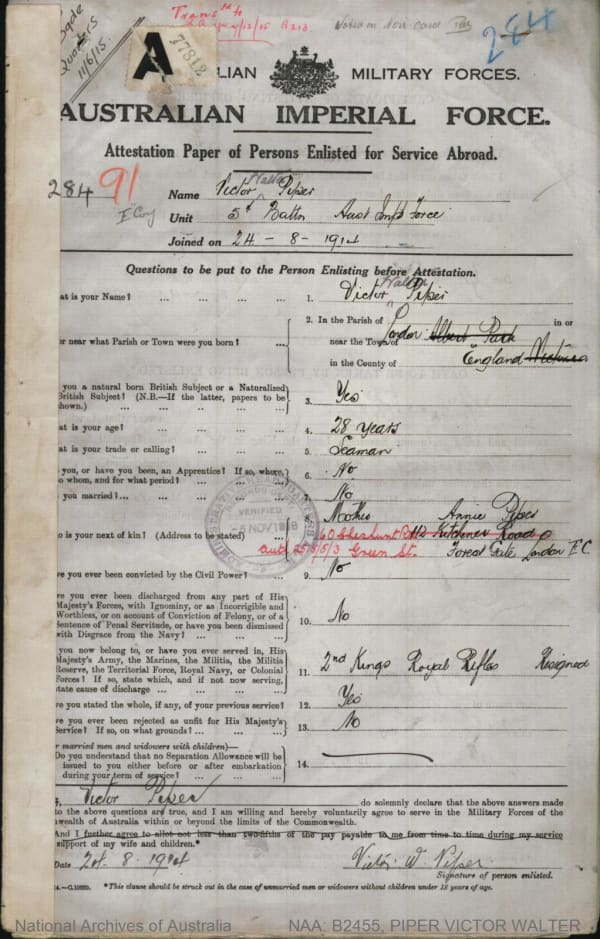 Transd to
11/6/15
A
77812
284
ALIAN MILITARY FORCES.
AUSTRALIAN IMPERIAL FORCE.
Attestation Paper of Persons Enlisted for Service Abroad.
284 91
E Coy
Name Victor Walter Piper
Unit 5th Battn Aust Impl Force
Joined on 24 - 8 - 1914
Questions to be put to the Person Enlisting before Attestation.
at is your Name? ... ... ... ... 1. Victor Walter Piper
or near what Parish or Town were you born? ... 2. In the Parish of London in or
near the Town of Albert Park
in the County of England Victoria
you a natural born British Subject or a Naturalized
British Subject? (N.B.—If the latter, papers to be
shown.) ... ... ... ... 3. Yes
at is your age? ... ... ... ... 4. 28 Years
at is your trade or calling? ... ... ... 5. Seaman
you, or have you been, an Apprentice? If so, where,
o whom, and for what period? ... ... 6. No
you married?... ... ... ... 7. No
o is your next of kin? (Address to be stated) ... 8. Mother Annie Piper
60 Cheshunt Rd Kitchener Road
Green St. Forest Gate London E.C
VERIFIED
-5 NOV 1918
ve you ever been convicted by the Civil Power? ... 9. No
ve you ever been discharged from any part of His
Majesty's Forces, with Ignominy, or as Incorrigible and
Worthless, or on account of Conviction of Felony, or of a
Sentence of Penal Servitude, or have you been dismissed
with Disgrace from the Navy? ... ... ... 10. No
you now belong to, or have you ever served in, His
Majesty's Army, the Marines, the Militia, the Militia
Reserve, the Territorial Force, Royal Navy, or Colonial
Forces? If so, state which, and if not now serving,
state cause of discharge ... ... ... ... 11. 2nd Kings Royal Rifles Resigned
ve you stated the whole, if any, of your previous service? 12. Yes
ve you ever been rejected as unfit for His Majesty's
Service? If so, on what grounds? ... ... ... 13. No
r married men and widowers with children)—
Do you understand that no Separation Allowance will be
issued to you either before or after embarkation
during your term of service? ... ... ... 14.
I, Victor Piper do solemnly declare that the above answers made
to the above questions are true, and I am willing and hereby voluntarily agree to serve in the Military Forces of the
wealth of Australia within or beyond the limits of the Commonwealth.
And I further agree to allot not less than two-fifths of the pay payable to me from time to time during my service
support of my wife and children.*
Date 24. 8. 1914 Victor. W. Piper.
Signature of person enlisted.
14.—C.10939. *This clause should be struck out in the case of unmarried men or widowers without children under 18 years of age.
National Archives of Australia NAA: B2455, PIPER VICTOR WALTER